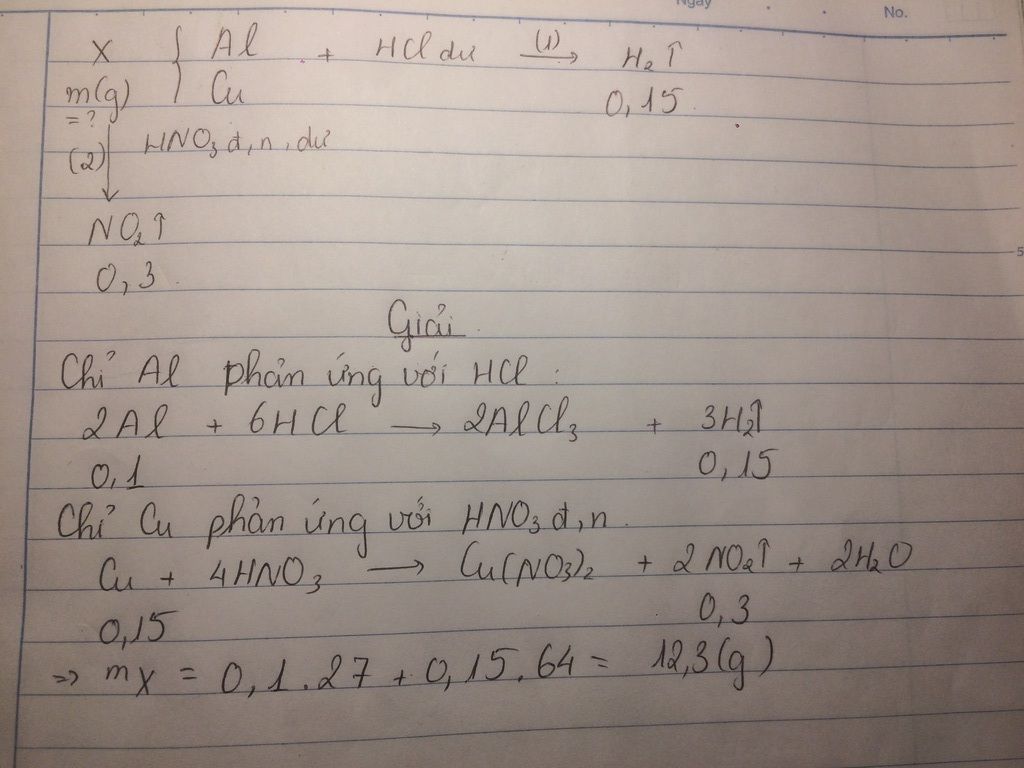 Ngày No.
X { Al + HCl dư (1)→ H₂↑
m(g) Cu 0,15
=?
(2)↓ HNO₃ đ,n,dư
NO₂↑
0,3
Giải
Chỉ Al phản ứng với HCl :
2Al + 6HCl → 2AlCl₃ + 3H₂↑
0,1 0,15
Chỉ Cu phản ứng với HNO₃ đ,n.
Cu + 4HNO₃ → Cu(NO₃)₂ + 2NO₂↑ + 2H₂O
0,15 0,3
=> mX = 0,1.27 + 0,15.64 = 12,3(g)
5